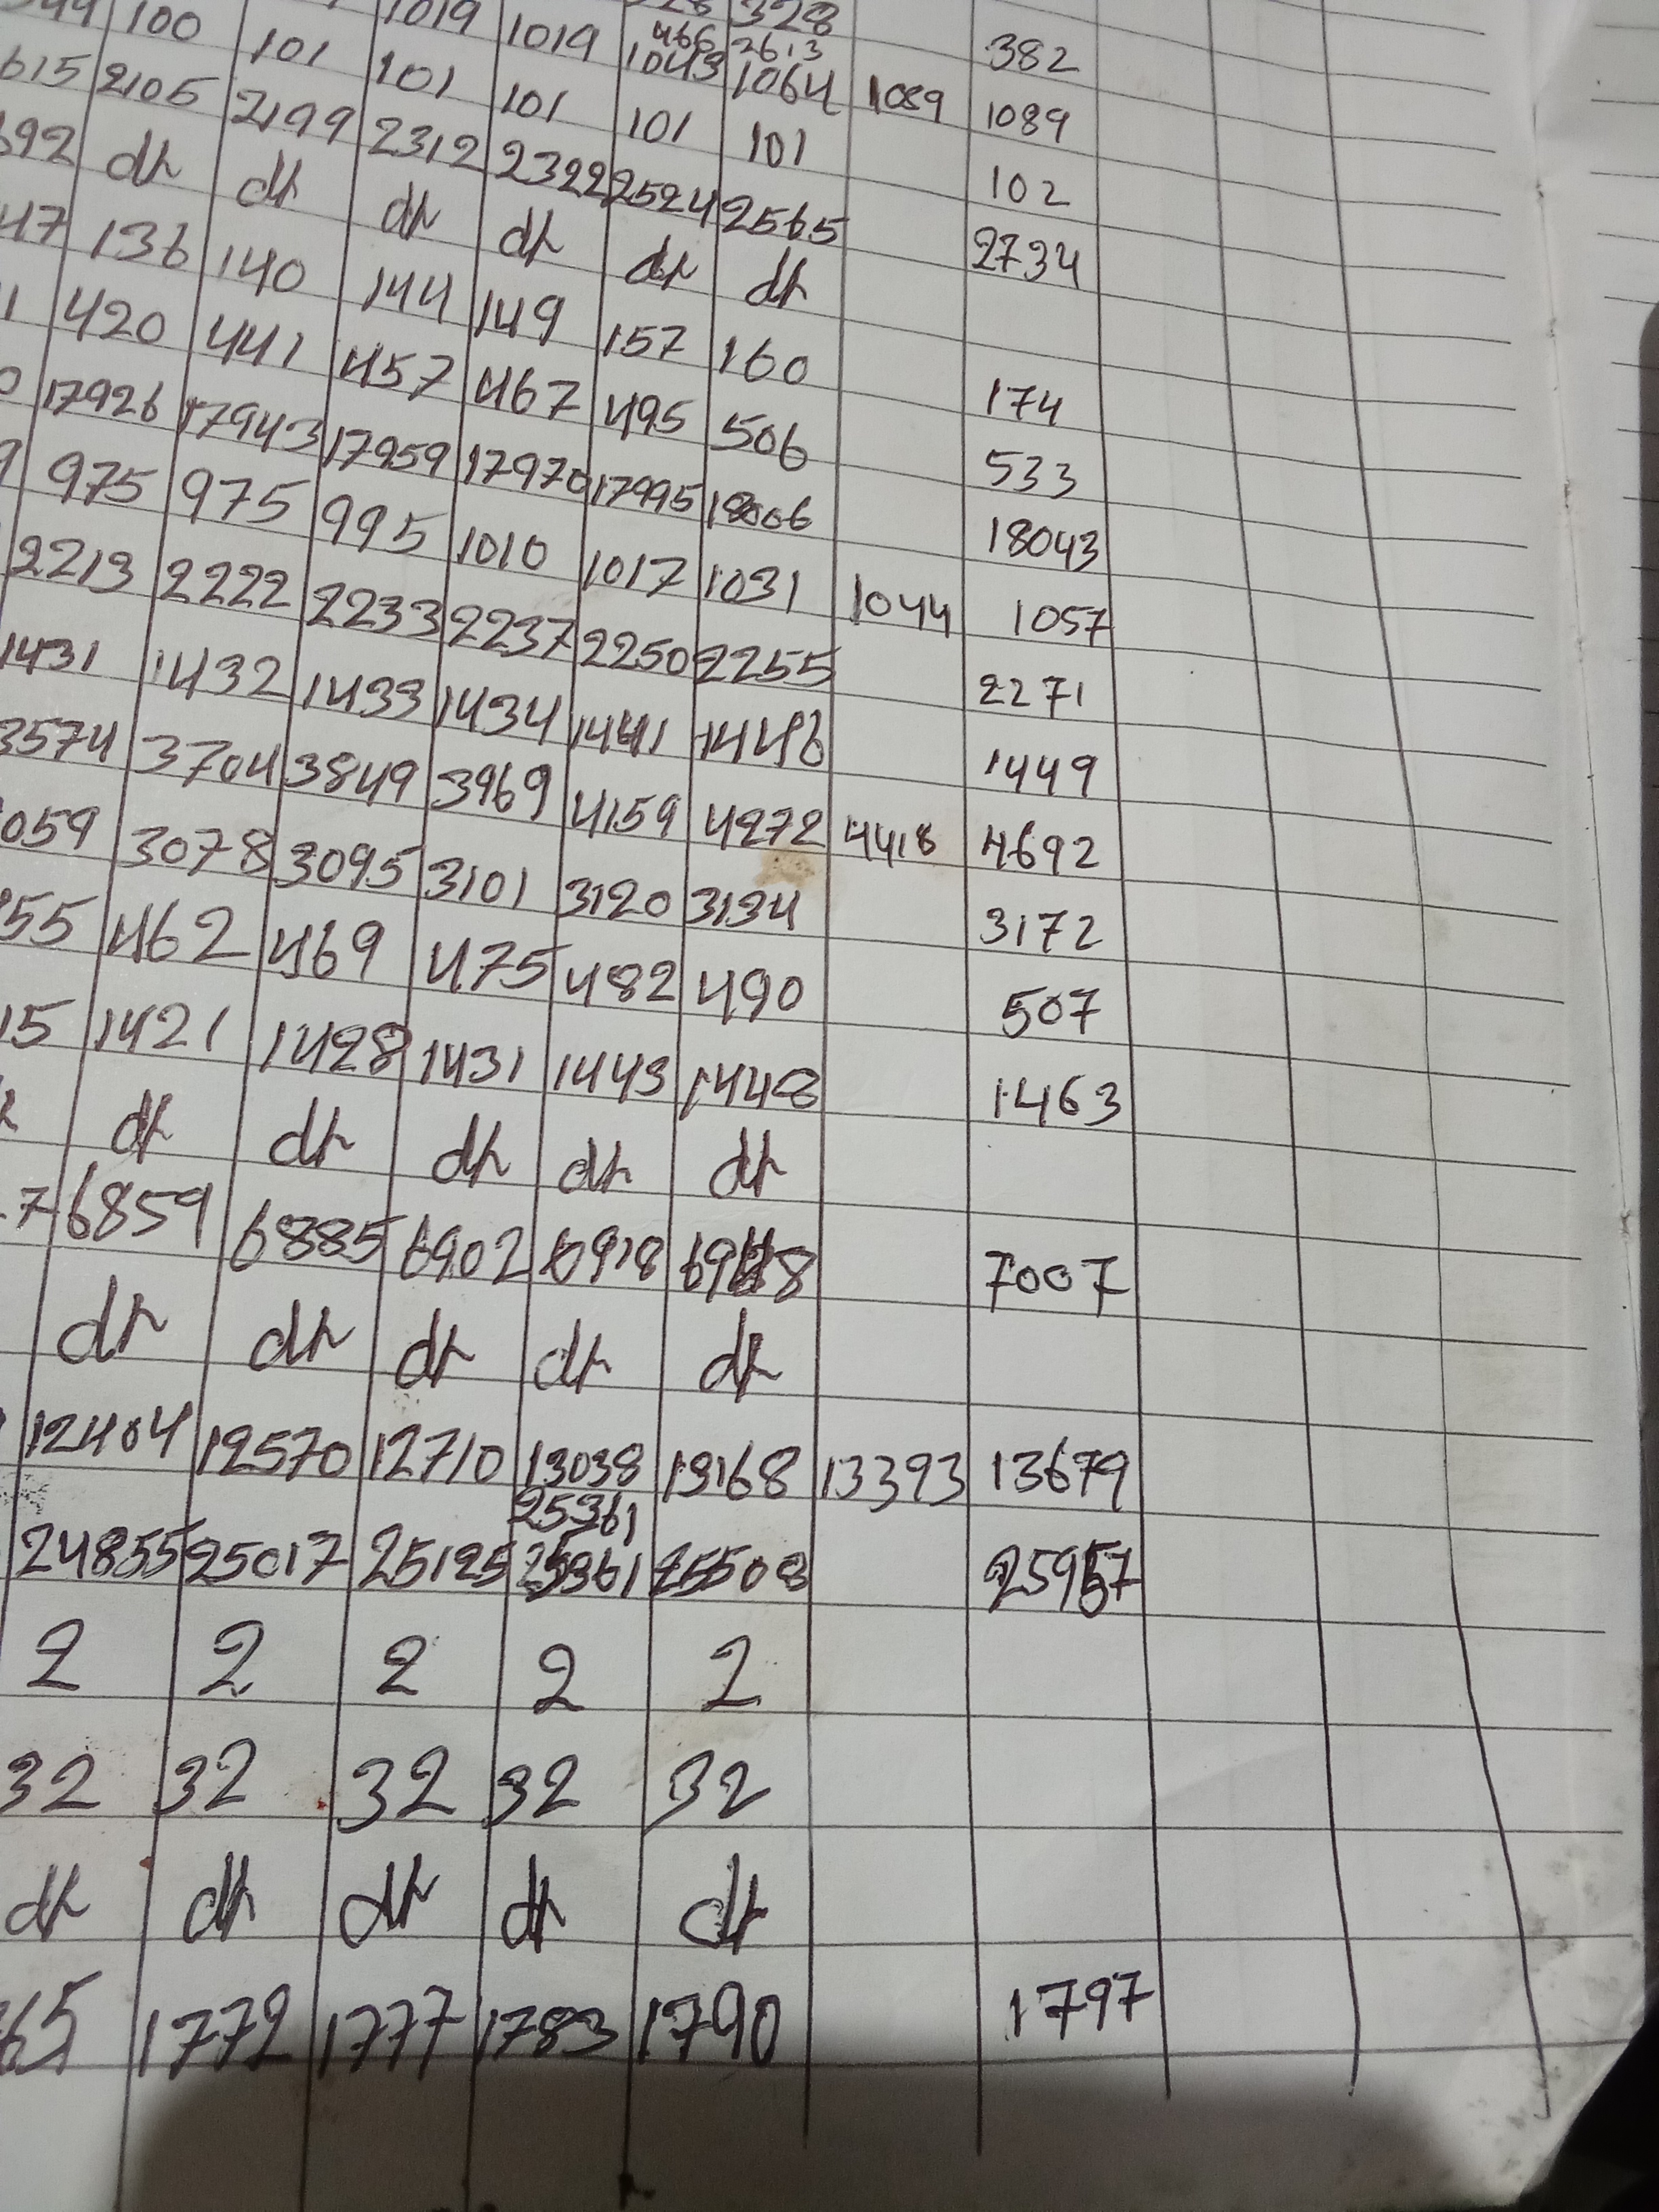 328
100 1019 1019 466 2613 382
101 101 1043 1064 1089 1089
615 2105 101 101 101 102
2199 2312 2322 2524 2565 2734
692 dr dr dr dr dr dr
47 136 140 144 149 157 160 174
1 420 441 457 467 495 506 533
0 17926 17943 17959 17970 17995 18006 18043
9 975 975 995 1010 1017 1031 1044 1057
2213 2222 2233 2237 2250 2255 2271
1431 1432 1433 1434 1441 1446 1449
3574 3704 3849 3969 4159 4272 4418 4692
059 3078 3095 3101 3120 3134 3172
55 462 469 475 482 490 507
15 1421 1428 1431 1443 1448 1463
dr dr dr dr dr
7 6859 6885 6902 6918 6948 7007
dr dr dr dr dr
12404 12570 12710 13038 13168 13393 13679
25361
24855 25017 25125 25361 25508 25957
2 2 2 2 2
32 32 32 32 32
dr dr dr dr dr
65 1772 1777 1783 1790 1797